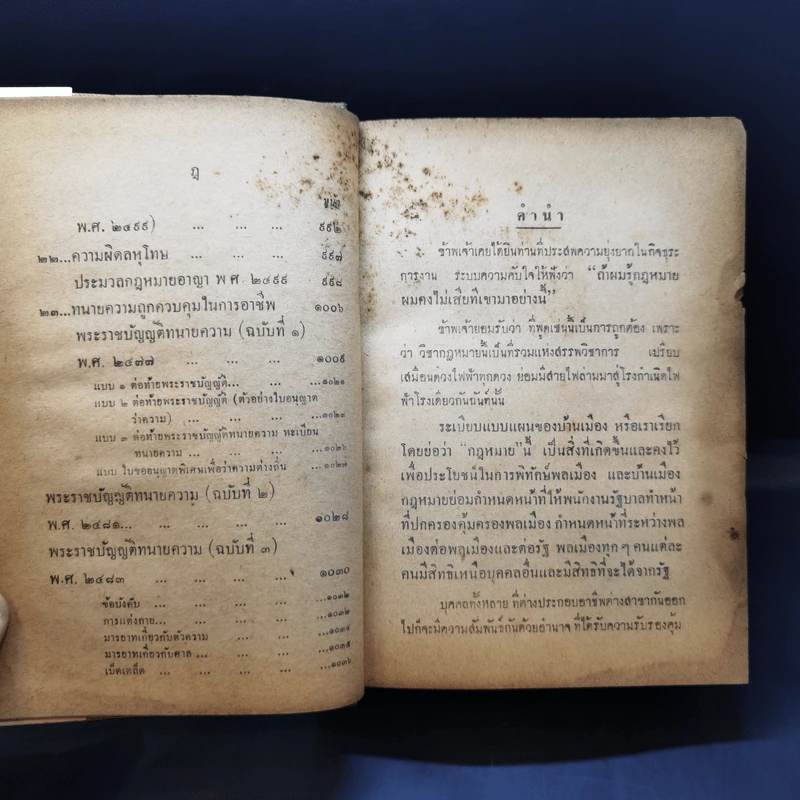 ฎ
หน้า
พ.ศ. ๒๔๙๙) ... ... ... ๙๙๒
๒๒...ความผิดลหุโทษ ... ... ... ๙๙๗
ประมวลกฎหมายอาญา พ.ศ. ๒๔๙๙ ๙๙๘
๒๓...ทนายความถูกควบคุมในการอาชีพ ๑๐๐๖
พระราชบัญญัติทนายความ (ฉบับที่ ๑)
พ.ศ. ๒๔๗๗ ... ... ... ๑๐๐๙
แบบ ๑ ต่อท้ายพระราชบัญญัติ... ... ...๑๐๒๑
แบบ ๒ ต่อท้ายพระราชบัญญัติ (ตัวอย่างใบอนุญาต
ว่าความ) ... ... ... ...๑๐๒๓
แบบ ๓ ต่อท้ายพระราชบัญญัติทนายความ ทะเบียน
ทนายความ ... ... ... ...๑๐๒๖
แบบ ใบขออนุญาตพิเศษเพื่อว่าความต่างถิ่น ...๑๐๒๗
พระราชบัญญัติทนายความ (ฉบับที่ ๒)
พ.ศ. ๒๔๘๑... ... ... ... ๑๐๒๘
พระราชบัญญัติทนายความ (ฉบับที่ ๓)
พ.ศ. ๒๔๘๓ ... ... ... ๑๐๓๐
ข้อบังคับ ... ... ... ...๑๐๓๒
การแต่งกาย... ... ... ...๑๐๓๒
มารยาทเกี่ยวกับตัวความ ... ... ...๑๐๓๔
มารยาทเกี่ยวกับศาล ... ... ... ...๑๐๓๕
เบ็ดเตล็ด ... ... ... ...๑๐๓๖
คำนำ
ข้าพเจ้าเคยได้ยินท่านที่ประสพความยุ่งยากในกิจธุระ
การงาน ระบบความคับใจให้ฟังว่า "ถ้าผมรู้กฎหมาย
ผมคงไม่เสียทีเขามาอย่างนี้"
ข้าพเจ้ายอมรับว่า ที่พูดเช่นนี้เป็นการถูกต้อง เพราะ
ว่า วิชากฎหมายนี้เป็นที่รวมแห่งสรรพวิชาการ เปรียบ
เสมือนดวงไฟฟ้าทุกดวง ย่อมมีสายไฟล่ามมาสู่โรงกำเนิดไฟ
ฟ้าโรงเดียวกันฉันท์นั้น
ระเบียบแบบแผนของบ้านเมือง หรือเราเรียก
โดยย่อว่า "กฎหมาย" นี้ เป็นสิ่งที่เกิดขึ้นและคงไว้
เพื่อประโยชน์ในการพิทักษ์พลเมือง และบ้านเมือง
กฎหมายย่อมกำหนดหน้าที่ให้พนักงานรัฐบาลทำหน้า
ที่ปกครองคุ้มครองพลเมือง กำหนดหน้าที่ระหว่างพล
เมืองต่อพลเมืองและต่อรัฐ พลเมืองทุก ๆ คนแต่ละ
คนมีสิทธิเหนือบุคคลอื่นและมีสิทธิที่จะได้จากรัฐ
บุคคลทั้งหลาย ที่ต่างประกอบอาชีพต่างสาขากันออก
ไปก็จะมีความสัมพันธ์กันด้วยอำนาจ ที่ได้รับความรับรองคุ้ม